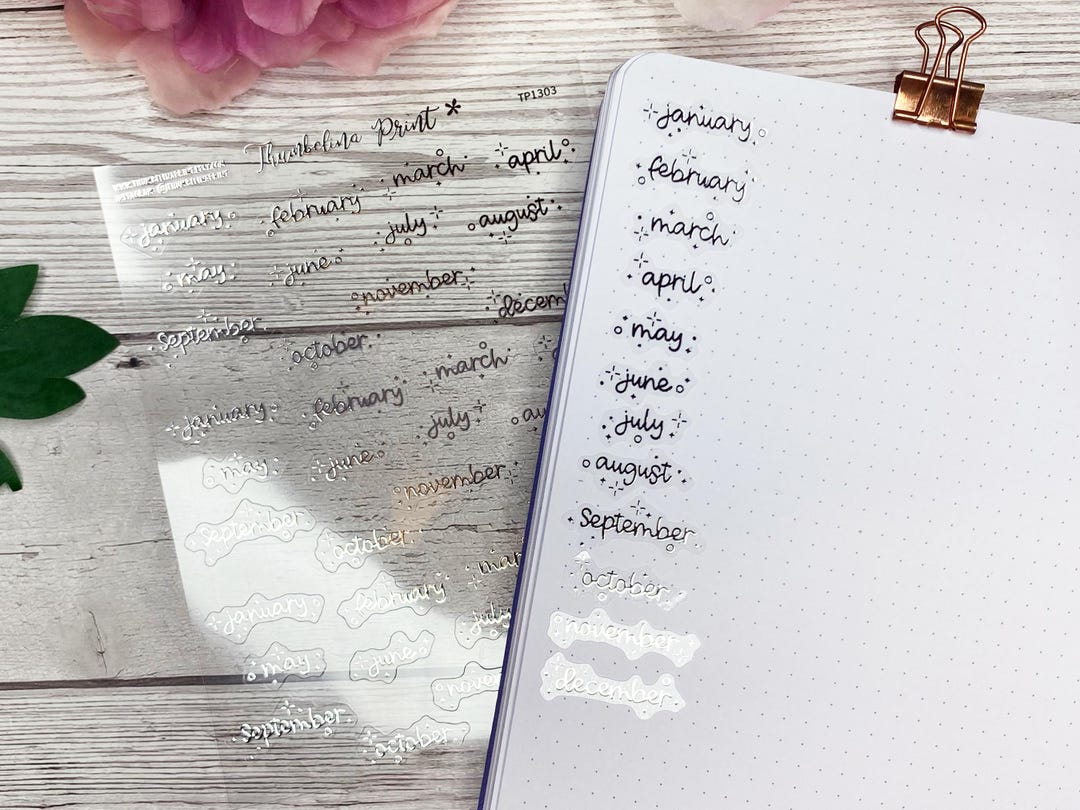 TP1303
Thumbelina Print *
january february march april
may june july august
september october november decem
january february march
may june july au
september october november
january february mar
may june july
september october novem
january
february
march
april
may
june
july
august
September
october
november
december